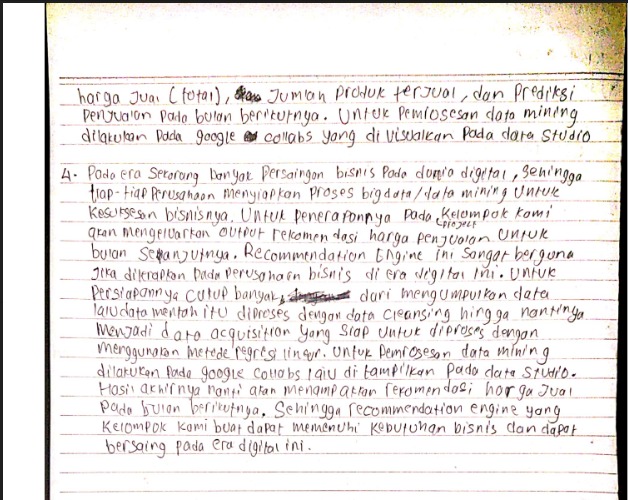 harga Jual (total), Jumlah Produk terjual, dan Prediksi
Penjualan Pada bulan berikutnya. Untuk Pemrosesan data mining
dilakukan Pada google collabs yang di visualkan Pada data Studio
4. Pada era Sekarang banyak Persaingan bisnis Pada dunia digital, Sehingga
tiap-tiap Perusahaan menyiapkan Proses big data/data mining Untuk
Kesuksesan bisnisnya. Untuk penerapannya Pada Project Kelompok kami
akan mengeluarkan output rekomendasi harga penjualan Untuk
bulan Selanjutnya. Recommendation Engine ini Sangat berguna
Jika diterapkan Pada perusahaan bisnis di era digital ini. Untuk
Persiapannya cukup banyak, dari mengumpulkan data
lalu data mentah itu diproses dengan data cleansing hingga nantinya
Menjadi data acquisition yang Siap Untuk diproses dengan
Menggunakan metede regresi linear. Untuk Pemrosesan data mining
dilakukan Pada google collabs lalu di tampilkan Pada data Studio.
Hasil akhirnya nanti akan menampakan rekomendasi harga Jual
Pada bulan berikutnya. Sehingga recommendation engine yang
Kelompok Kami buat dapat memenuhi Kebutuhan bisnis dan dapat
bersaing pada era digital ini.